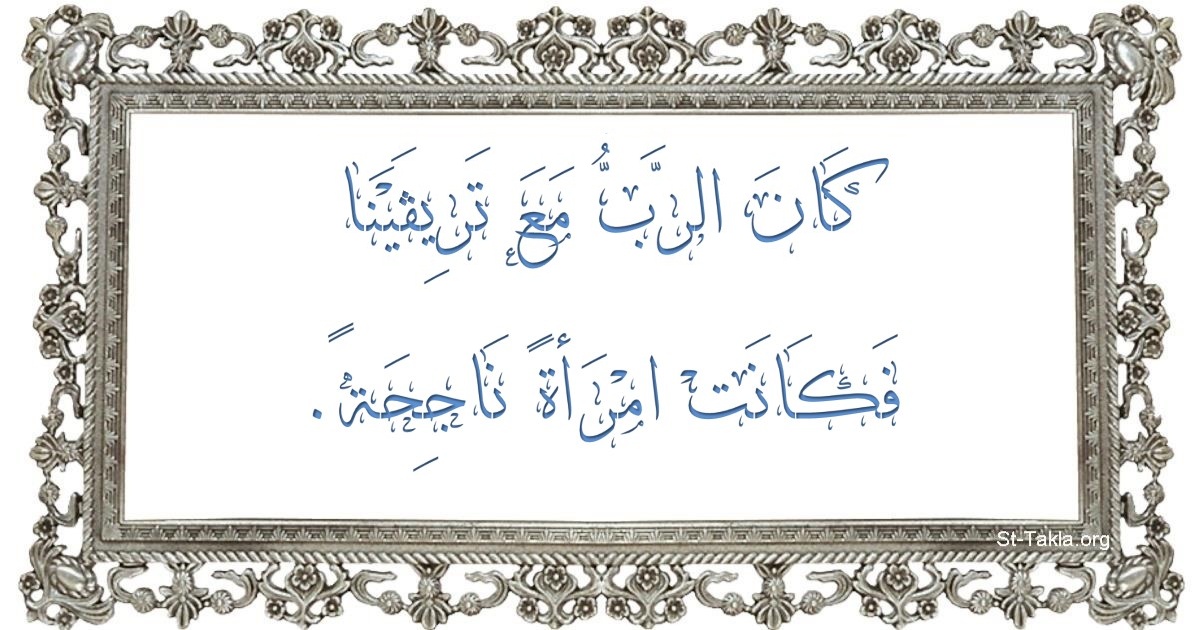 كَانَ الرَّبُّ مَعَ تَرِيڤَيْنَا
فَكَانَتْ امْرَأَةً نَاجِحَةً.
St-Takla.org